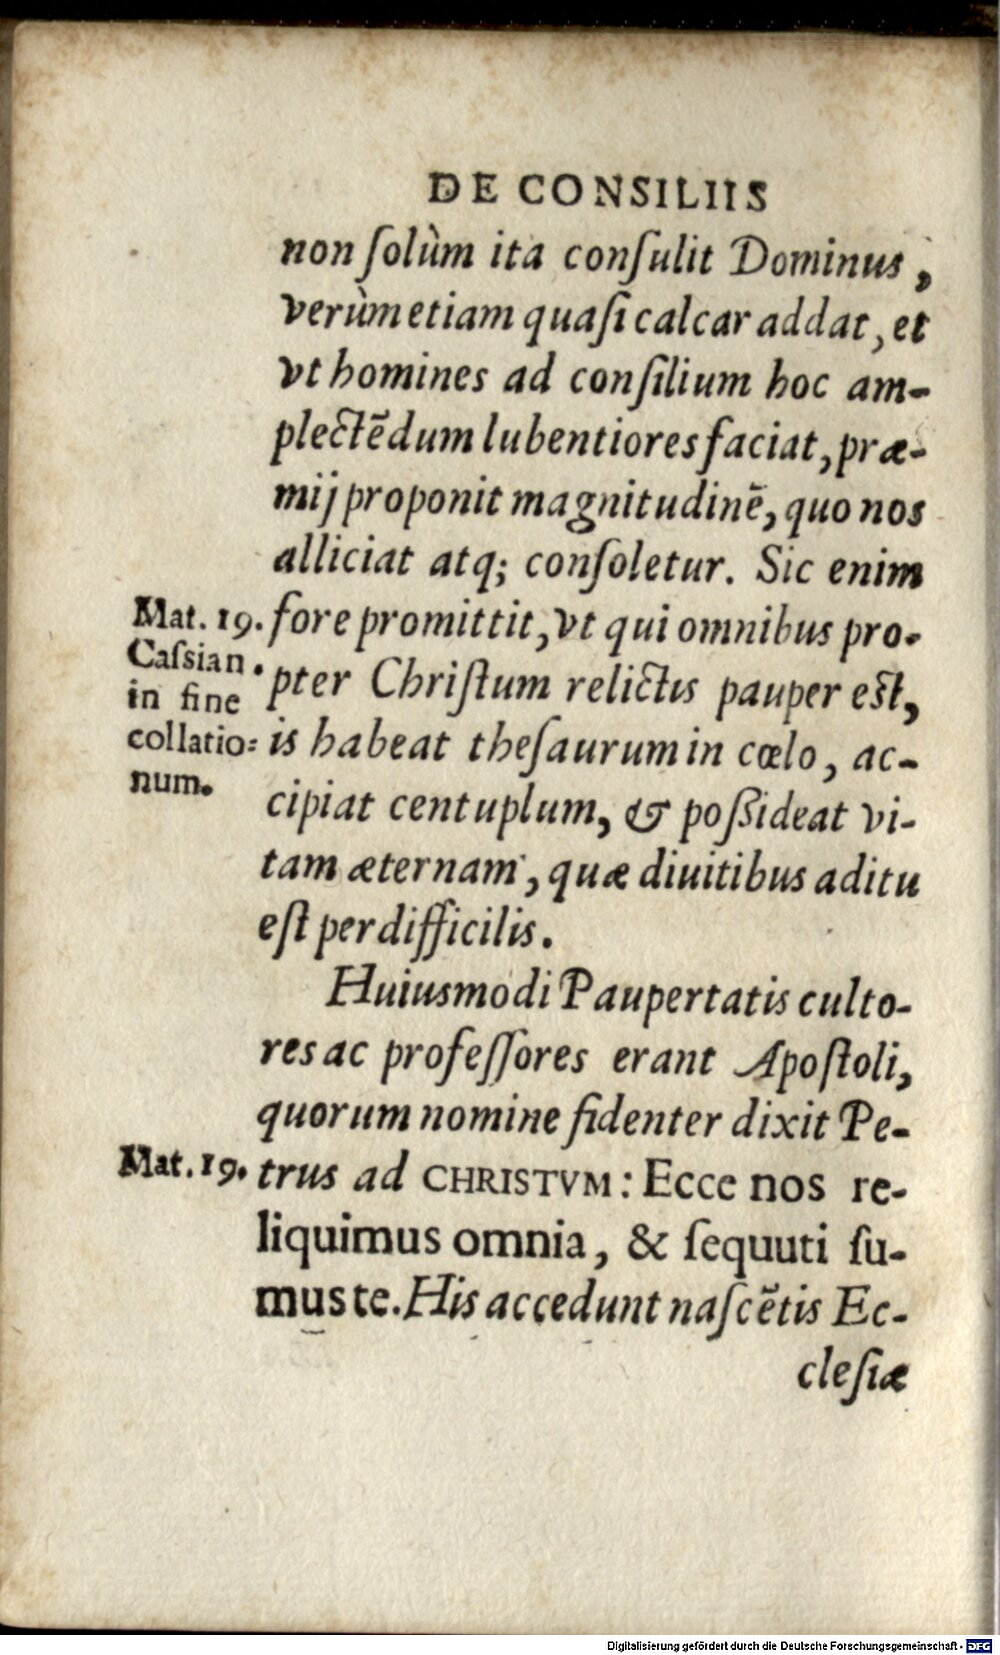 DE CONSILIIS
non ſolùm ita conſulit Dominus,
verùm etiam quaſi calcar addat, et
vt homines ad conſilium hoc am-
plectēdum lubentiores faciat, præ-
mij proponit magnitudinē, quo nos
alliciat atq; conſoletur. Sic enim
Mat. 19.
fore promittit, vt qui omnibus pro-
Caſsian.
in fine
collatio-
num.
pter Chriſtum relictis pauper eſt,
is habeat theſaurum in cœlo, ac-
cipiat centuplum, & poſsideat vi-
tam æternam, quæ diuitibus aditu
eſt perdifficilis.
Huiusmodi Paupertatis culto-
res ac profeſſores erant Apoſtoli,
quorum nomine fidenter dixit Pe-
Mat. 19.
trus ad CHRISTVM: Ecce nos re-
liquimus omnia, & ſequuti ſu-
mus te. His accedunt naſcētis Ec-
cleſiæ
Digitalisierung gefördert durch die Deutsche Forschungsgemeinschaft - DFG